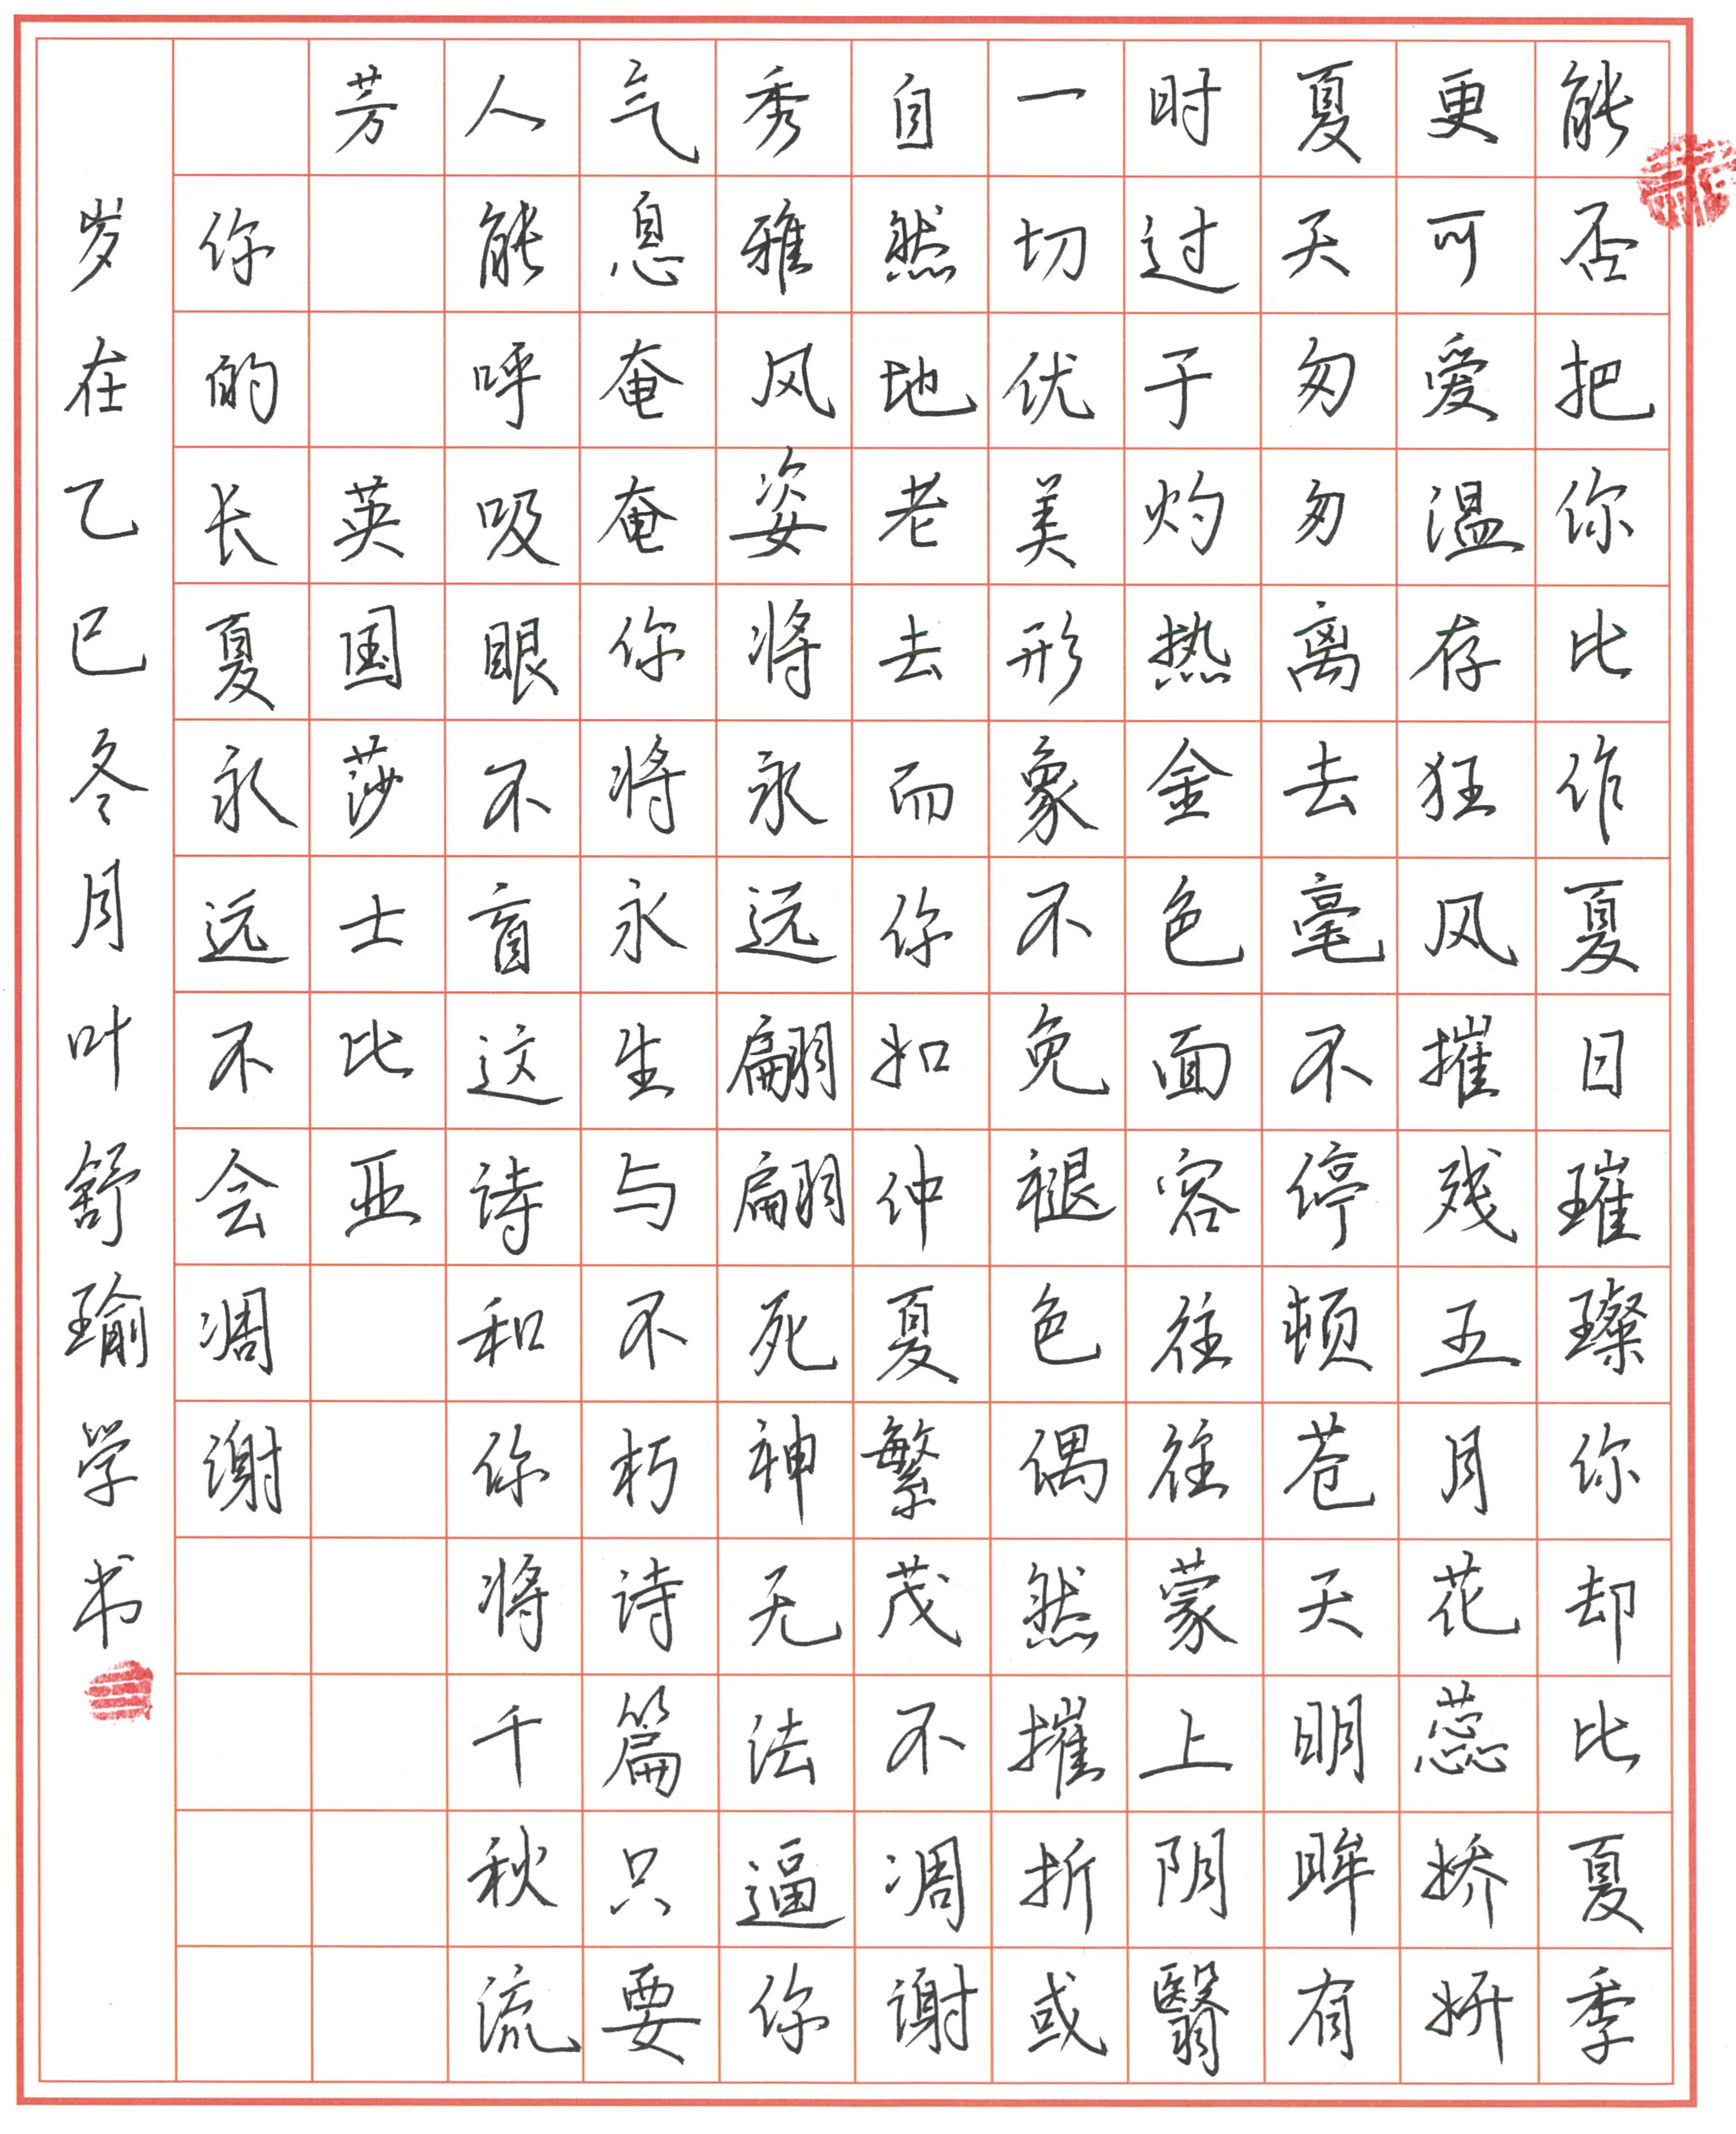 能否把你比作夏日璀璨你却比夏季
更可爱温存狂风摧残五月花蕊娇妍
夏天匆匆离去毫不停顿苍天明眸有
时过于灼热金色面容往往蒙上阴翳
一切优美形象不免褪色偶然摧折或
自然地老去而你如仲夏繁茂不凋谢
秀雅风姿将永远翩翩死神无法逼你
气息奄奄你将永生与不朽诗篇只要
人能呼吸眼不盲这诗和你将千秋流
芳 英国莎士比亚
你的长夏永远不会凋谢
岁在乙巳冬月叶舒瑜学书